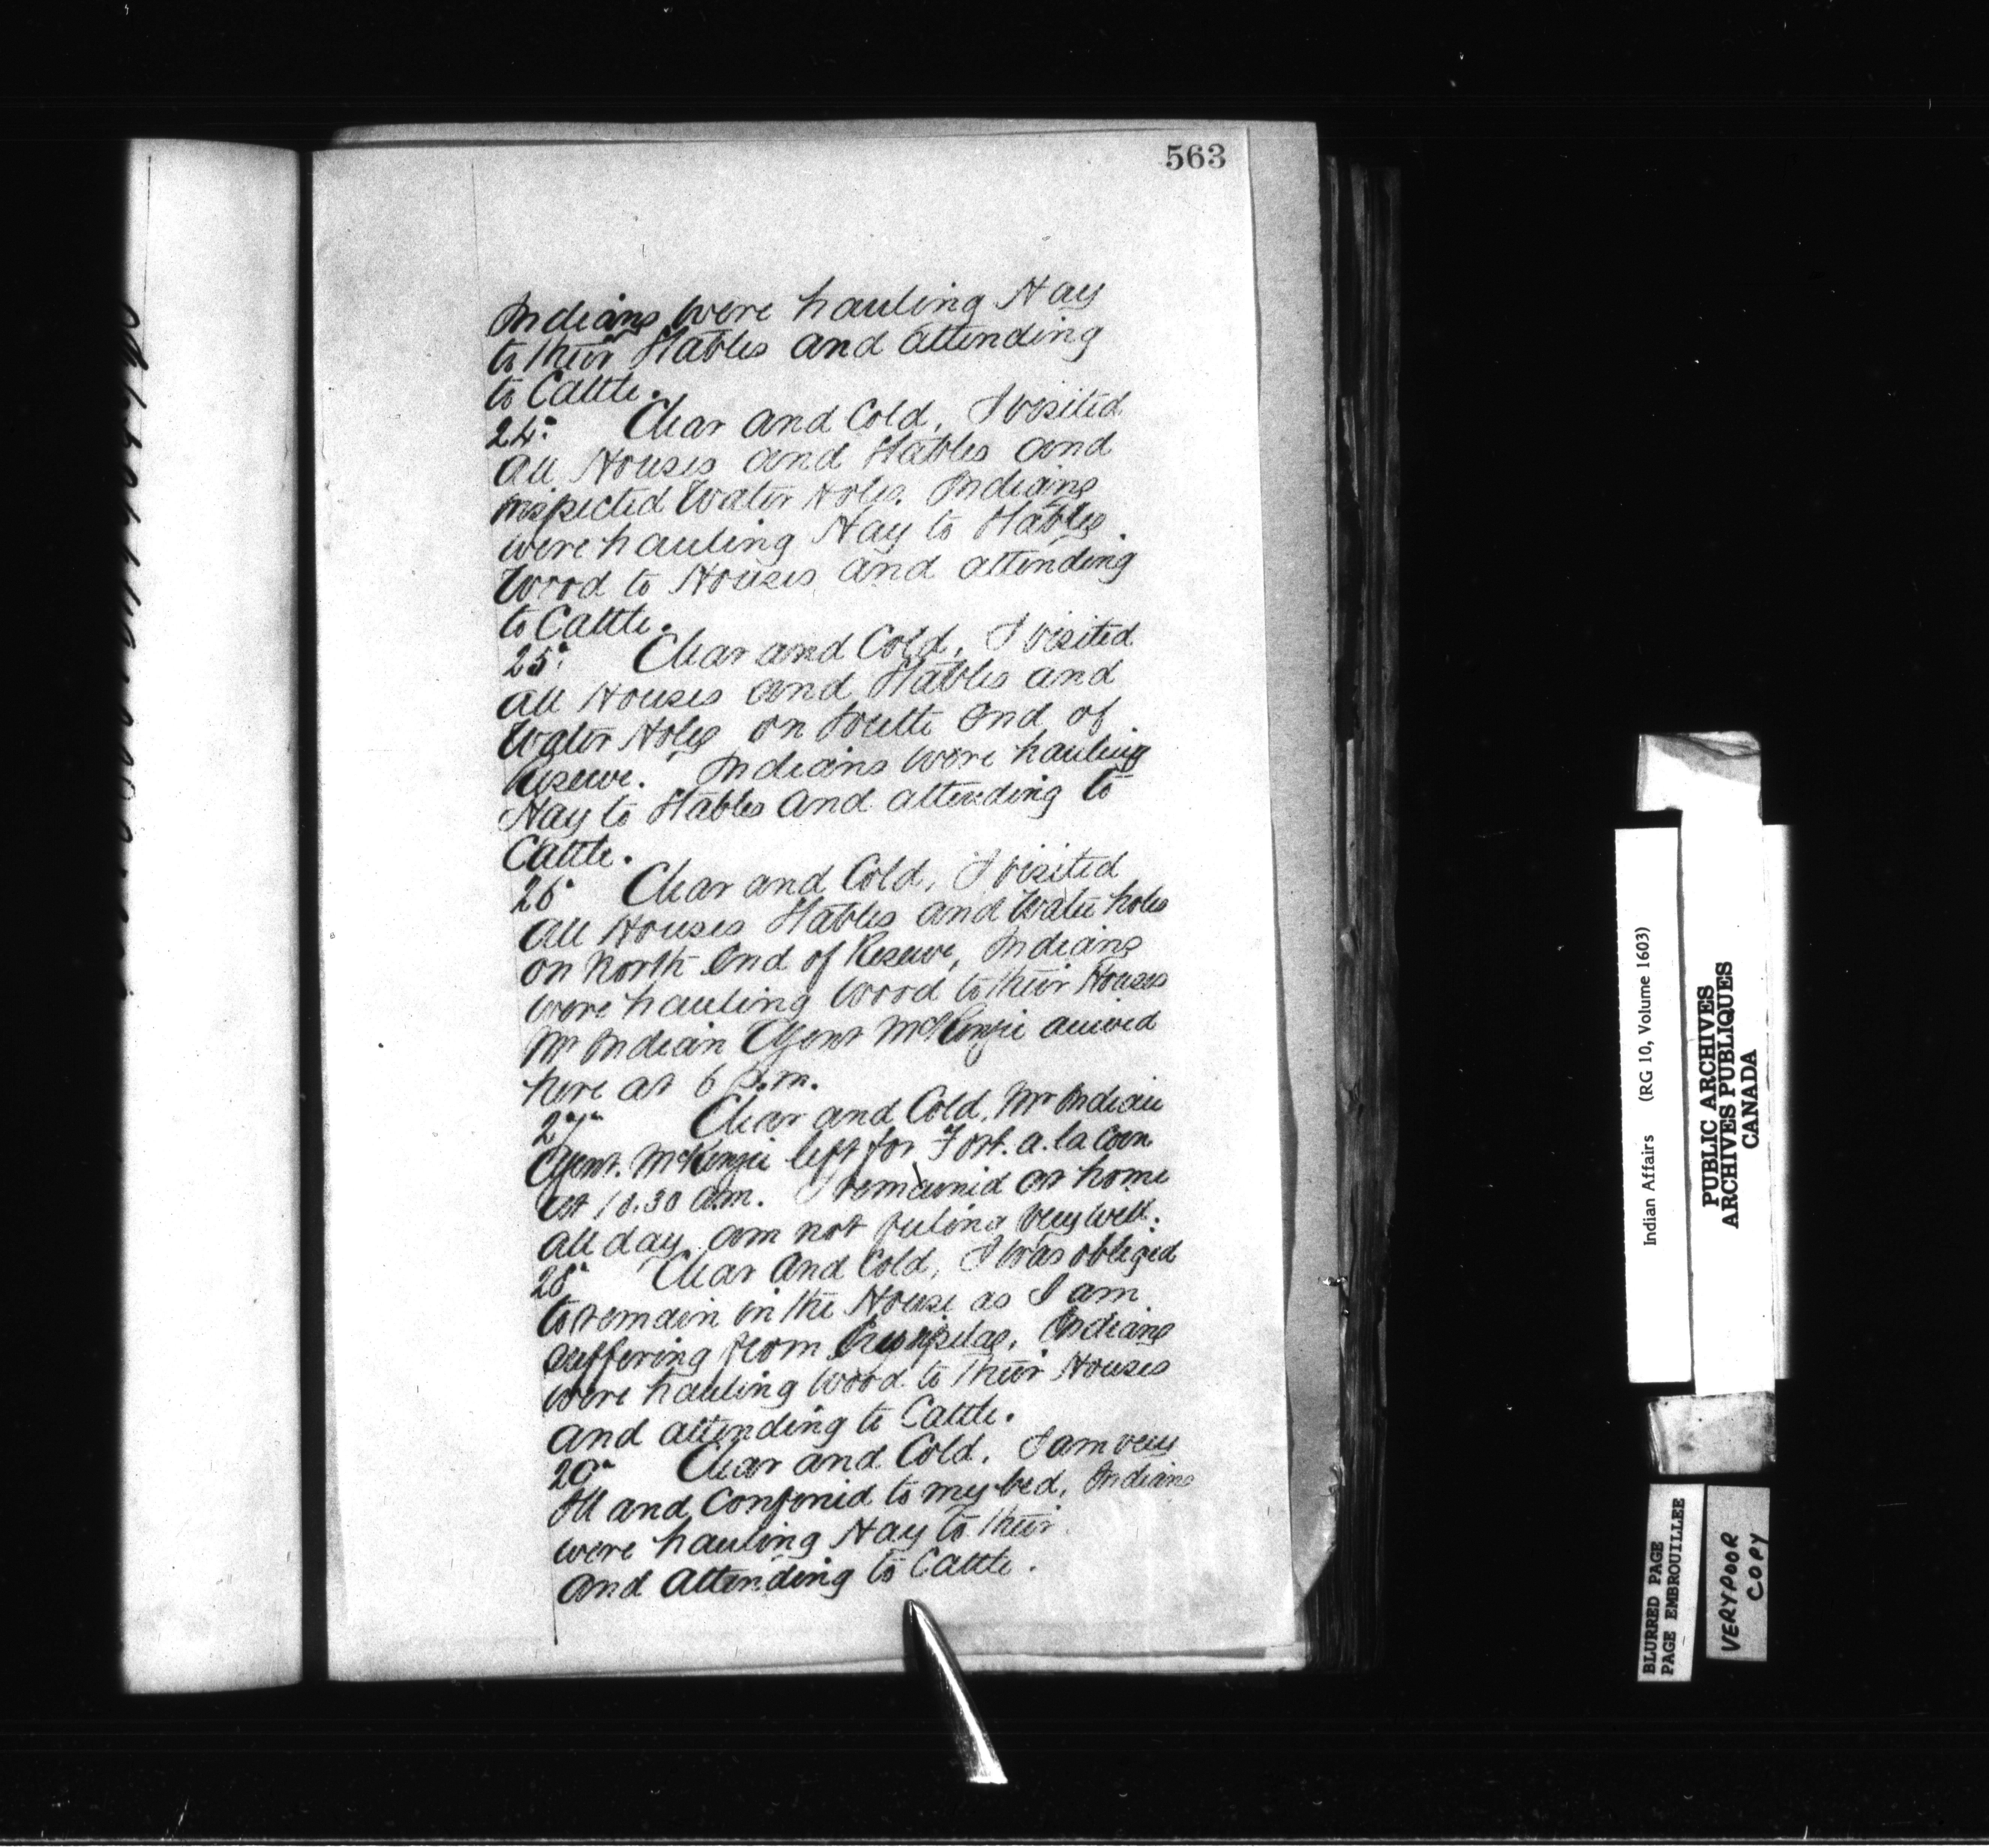 563
Indians were hauling Hay
to their Stables and attending
to Cattle.
24" Clear and Cold, I visited
all Houses and Stables and
inspected Water Holes. Indians
were hauling Hay to Stables
Wood to Houses and attending
to Cattle.
25" Clear and Cold, I visited
all Houses and Stables and
Water Holes on South End of
Reserve. Indians were hauling
Hay to Stables and attending to
Cattle.
26" Clear and Cold, I visited
all Houses Stables and Water holes
on North End of Reserve, Indians
were hauling Wood to their Houses
Mr Indian Agent McKenzie arrived
here at 6 P.m.
27" Clear and Cold, Mr Indian
Agent. McKenzie left for Fort. a. la Corn
at 10.30 a.m. I remained at home
all day am not feeling very well.
28" Clear and Cold, I was obliged
to remain in the House as I am
suffering from Erysipelas, Indians
were hauling Wood to their Houses
and attending to Cattle.
29" Clear and Cold, I am very
Ill and Confined to my bed, Indians
were hauling Hay to their
and attending to Cattle.
Indian Affairs (RG 10, Volume 1603)
PUBLIC ARCHIVES
ARCHIVES PUBLIQUES
CANADA
BLURRED PAGE
PAGE EMBROUILLEE
VERY POOR
COPY